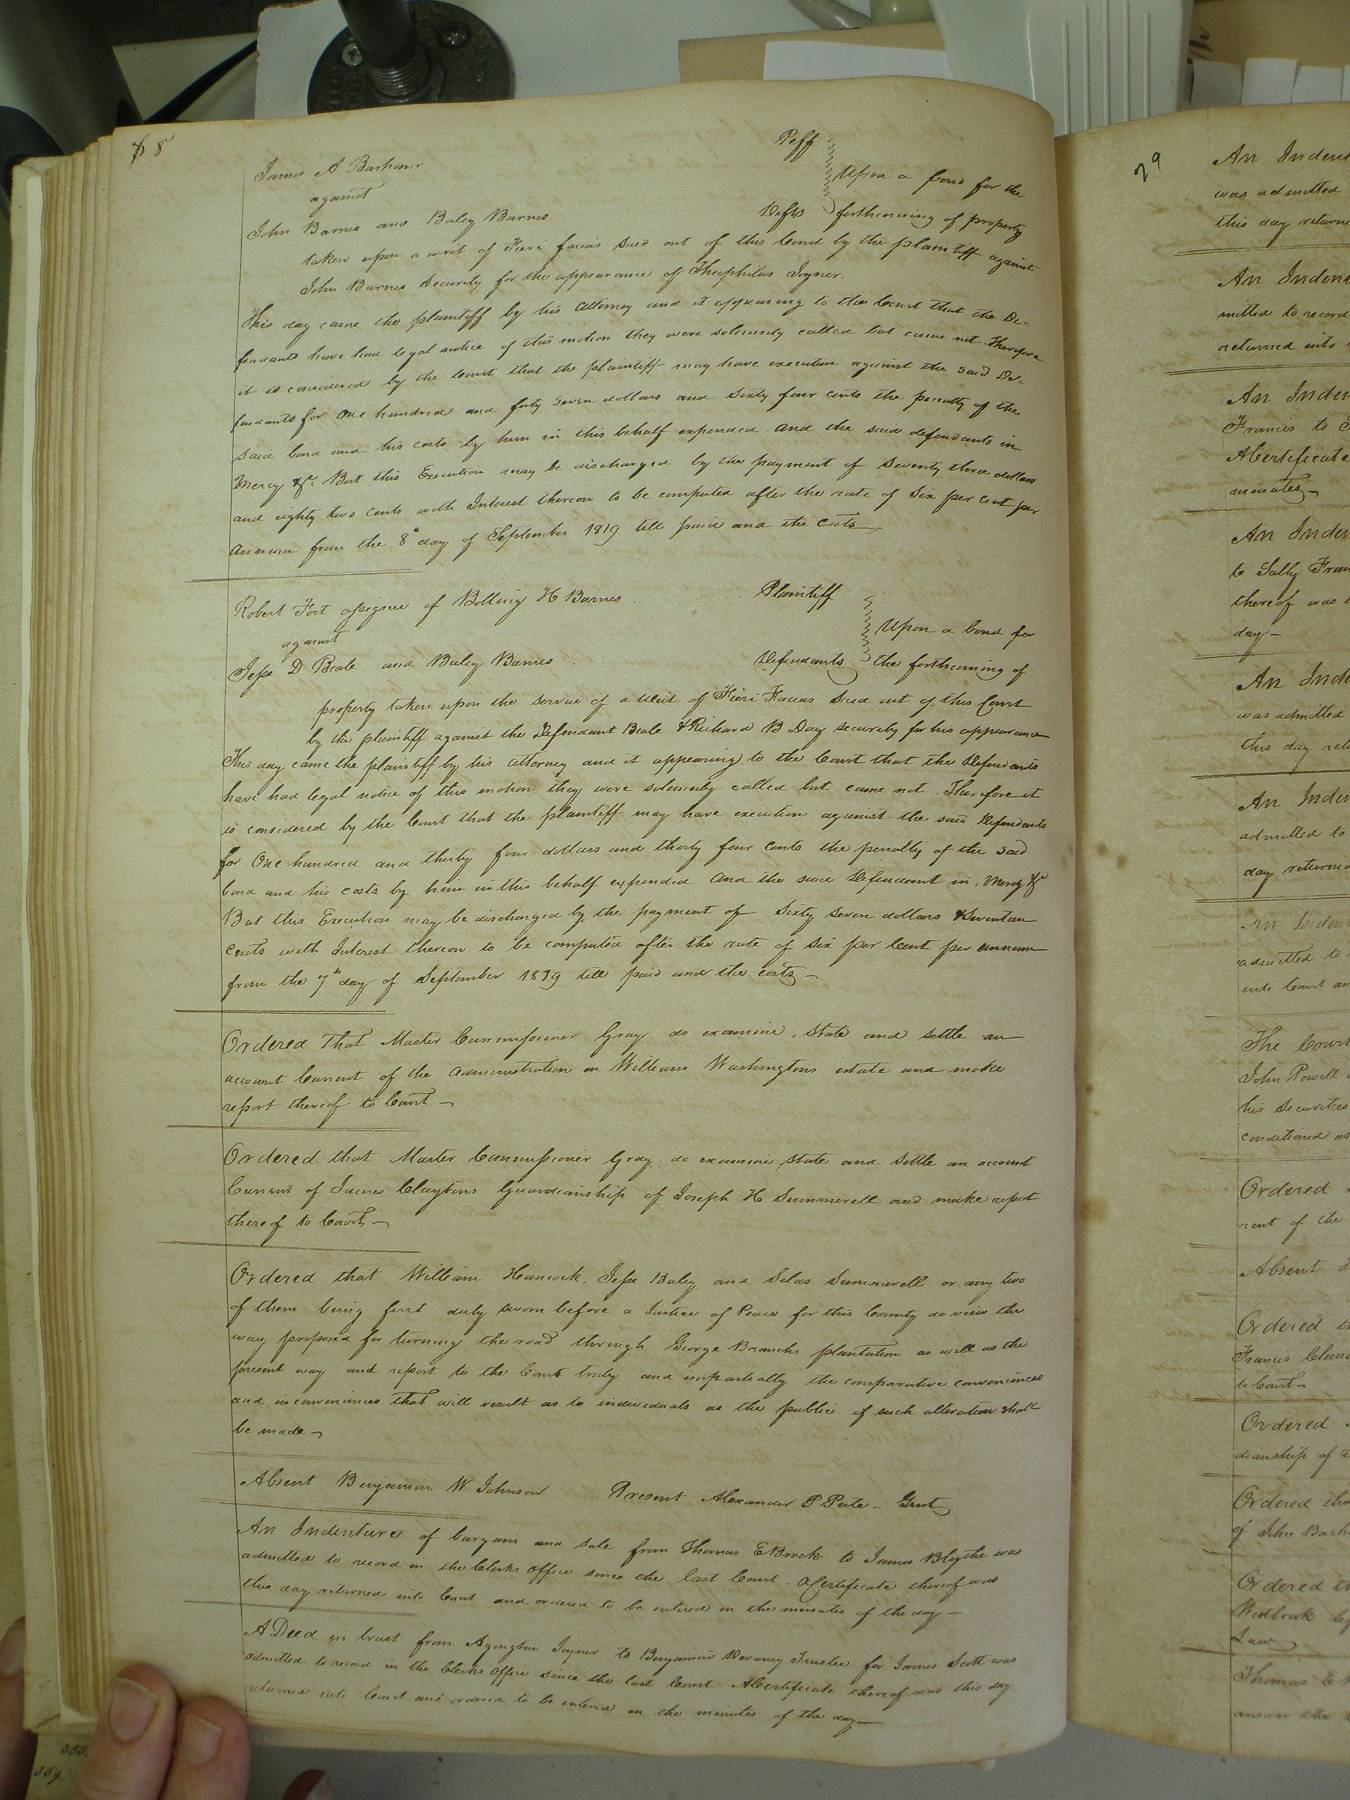 78
James A Barham Plff
against
Upon a bond for the
John Barnes and Baley Barnes Defts forthcoming of property
taken upon a writ of Fieri facias sued out of this Court by the plaintiff against
John Barnes Security for the appearance of Theophilus Joyner.
This day came the plaintiff by his attorney and it appearing to the Court that the De-
fendants have had legal notice of this motion they were solemnly called but came not. Therefore
it is considered by the Court that the plaintiff may have execution against the said De-
fendants for One hundred and forty seven dollars and Sixty four cents the penalty of the
said bond and his costs by him in this behalf expended and the said defendants in
Mercy &c. But this Execution may be discharged by the payment of Seventy three dollars
and eighty two cents with Interest thereon to be computed after the rate of Six per cent per
annum from the 8th day of September 1819 till paid and the Costs
Robert Fort assignee of Bolling H Barnes Plaintiff
against
Upon a bond for
Jesse D Beale and Baley Barnes Defendants the forthcoming of
property taken upon the service of a Writ of Fieri Facias Sued out of this Court
by the plaintiff against the Defendant Beale & Richard B Day security for his appearance
This day came the plaintiff by his attorney and it appearing to the Court that the Defendants
have had legal notice of this motion they were solemnly called but came not. Therefore it
is considered by the Court that the plaintiff may have execution against the said Defendants
for One hundred and thirty four dollars and thirty four cents the penalty of the said
bond and his costs by him in this behalf expended and the said Defendant in Mercy &c
But this Execution may be discharged by the payment of Sixty Seven dollars & Seventeen
cents with Interest thereon to be computed after the rate of six per Cent per annum
from the 7th day of September 1819 till paid and the costs —
Ordered that Master Commissioner Gray do examine, state and settle an
account Current of the administration on William Washingtons estate and make
report thereof to Court —
Ordered that Master Commissioner Gray do examine, state and settle an account
Current of James Claytons Guardianship of Joseph H Summerell and make report
thereof to Court —
Ordered that William Hancock, Jesse Baley and Silas Summerell or any two
of them being first duly sworn before a Justice of Peace for this County do view the
way proposed for turning the road through George Branchs plantation as well as the
present way and report to the Court truly and impartially the comparative conveniences
and inconveniences that will result as to individuals as the public if such alteration shall
be made —
Absent Benjamin W Johnson Present Alexander P Peete - Gent
An Indenture of bargain and sale from Thomas E Brock to James Blythe was
admitted to record in the Clerks office since the last Court. A Certificate thereof was
this day returned into Court and ordered to be entered in the minutes of the day —
A Deed in trust from Joyner to Benjamin Devaney Trustee for James Scott was
admitted to record in the Clerks Office since the last Court A Certificate thereof was this day
returned into Court and ordered to be entered in the minutes of the day —
29
An Inden
was admitted
this day return
An Inden
mitted to record
returned into
An Inden
Francis to
A Certificate
minutes —
An Inden
to Sally Fran
thereof was
day —
An Inde
was admitted
this day ret
An Inden
admitted to
day returned
An Inden
admitted to
into Court an
The Court
John Powell
his Securities
conditioned as
Ordered
rent of the
Absent
Ordered th
Francis
to Court —
Ordered
dianship of
Ordered tha
of John Barh
Ordered th
Westbrook
Law
Thomas E
answer the
355.
359